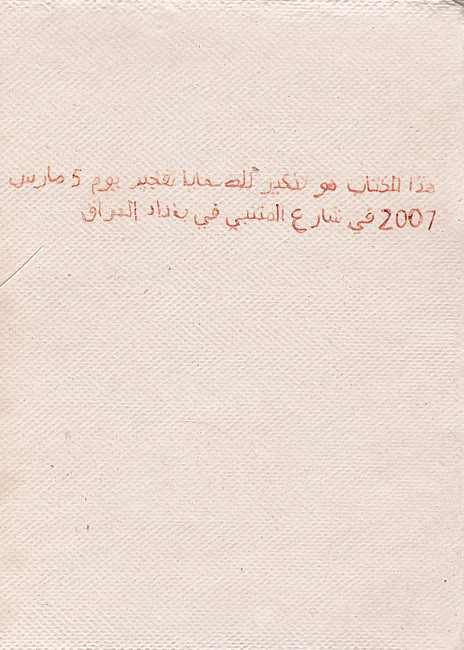 هذا الكتاب هو تذكير للضحايا تفجير يوم 5 مارس
2007 في شارع المتنبي في بغداد العراق